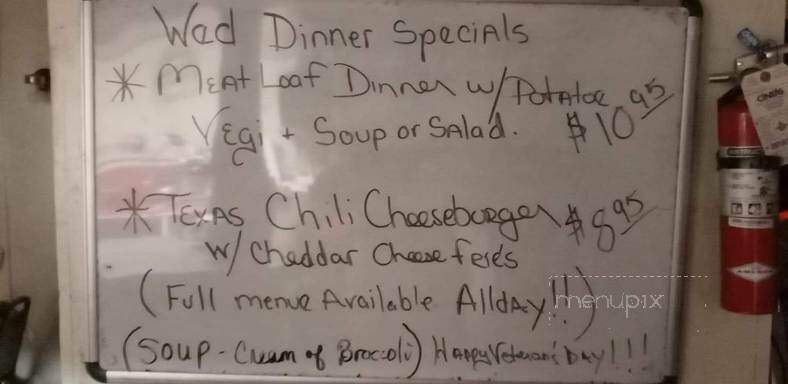 Wed Dinner Specials
* Meat Loaf Dinner w/ Potatoe
Vegi + Soup or Salad. $10.95
* Texas Chili Cheeseburger $8.95
w/ Cheddar Cheese Feies
(Full menue Available Allday!!)
menupix
(Soup - Cream of Broccoli) Happy Veteran's Day!!!